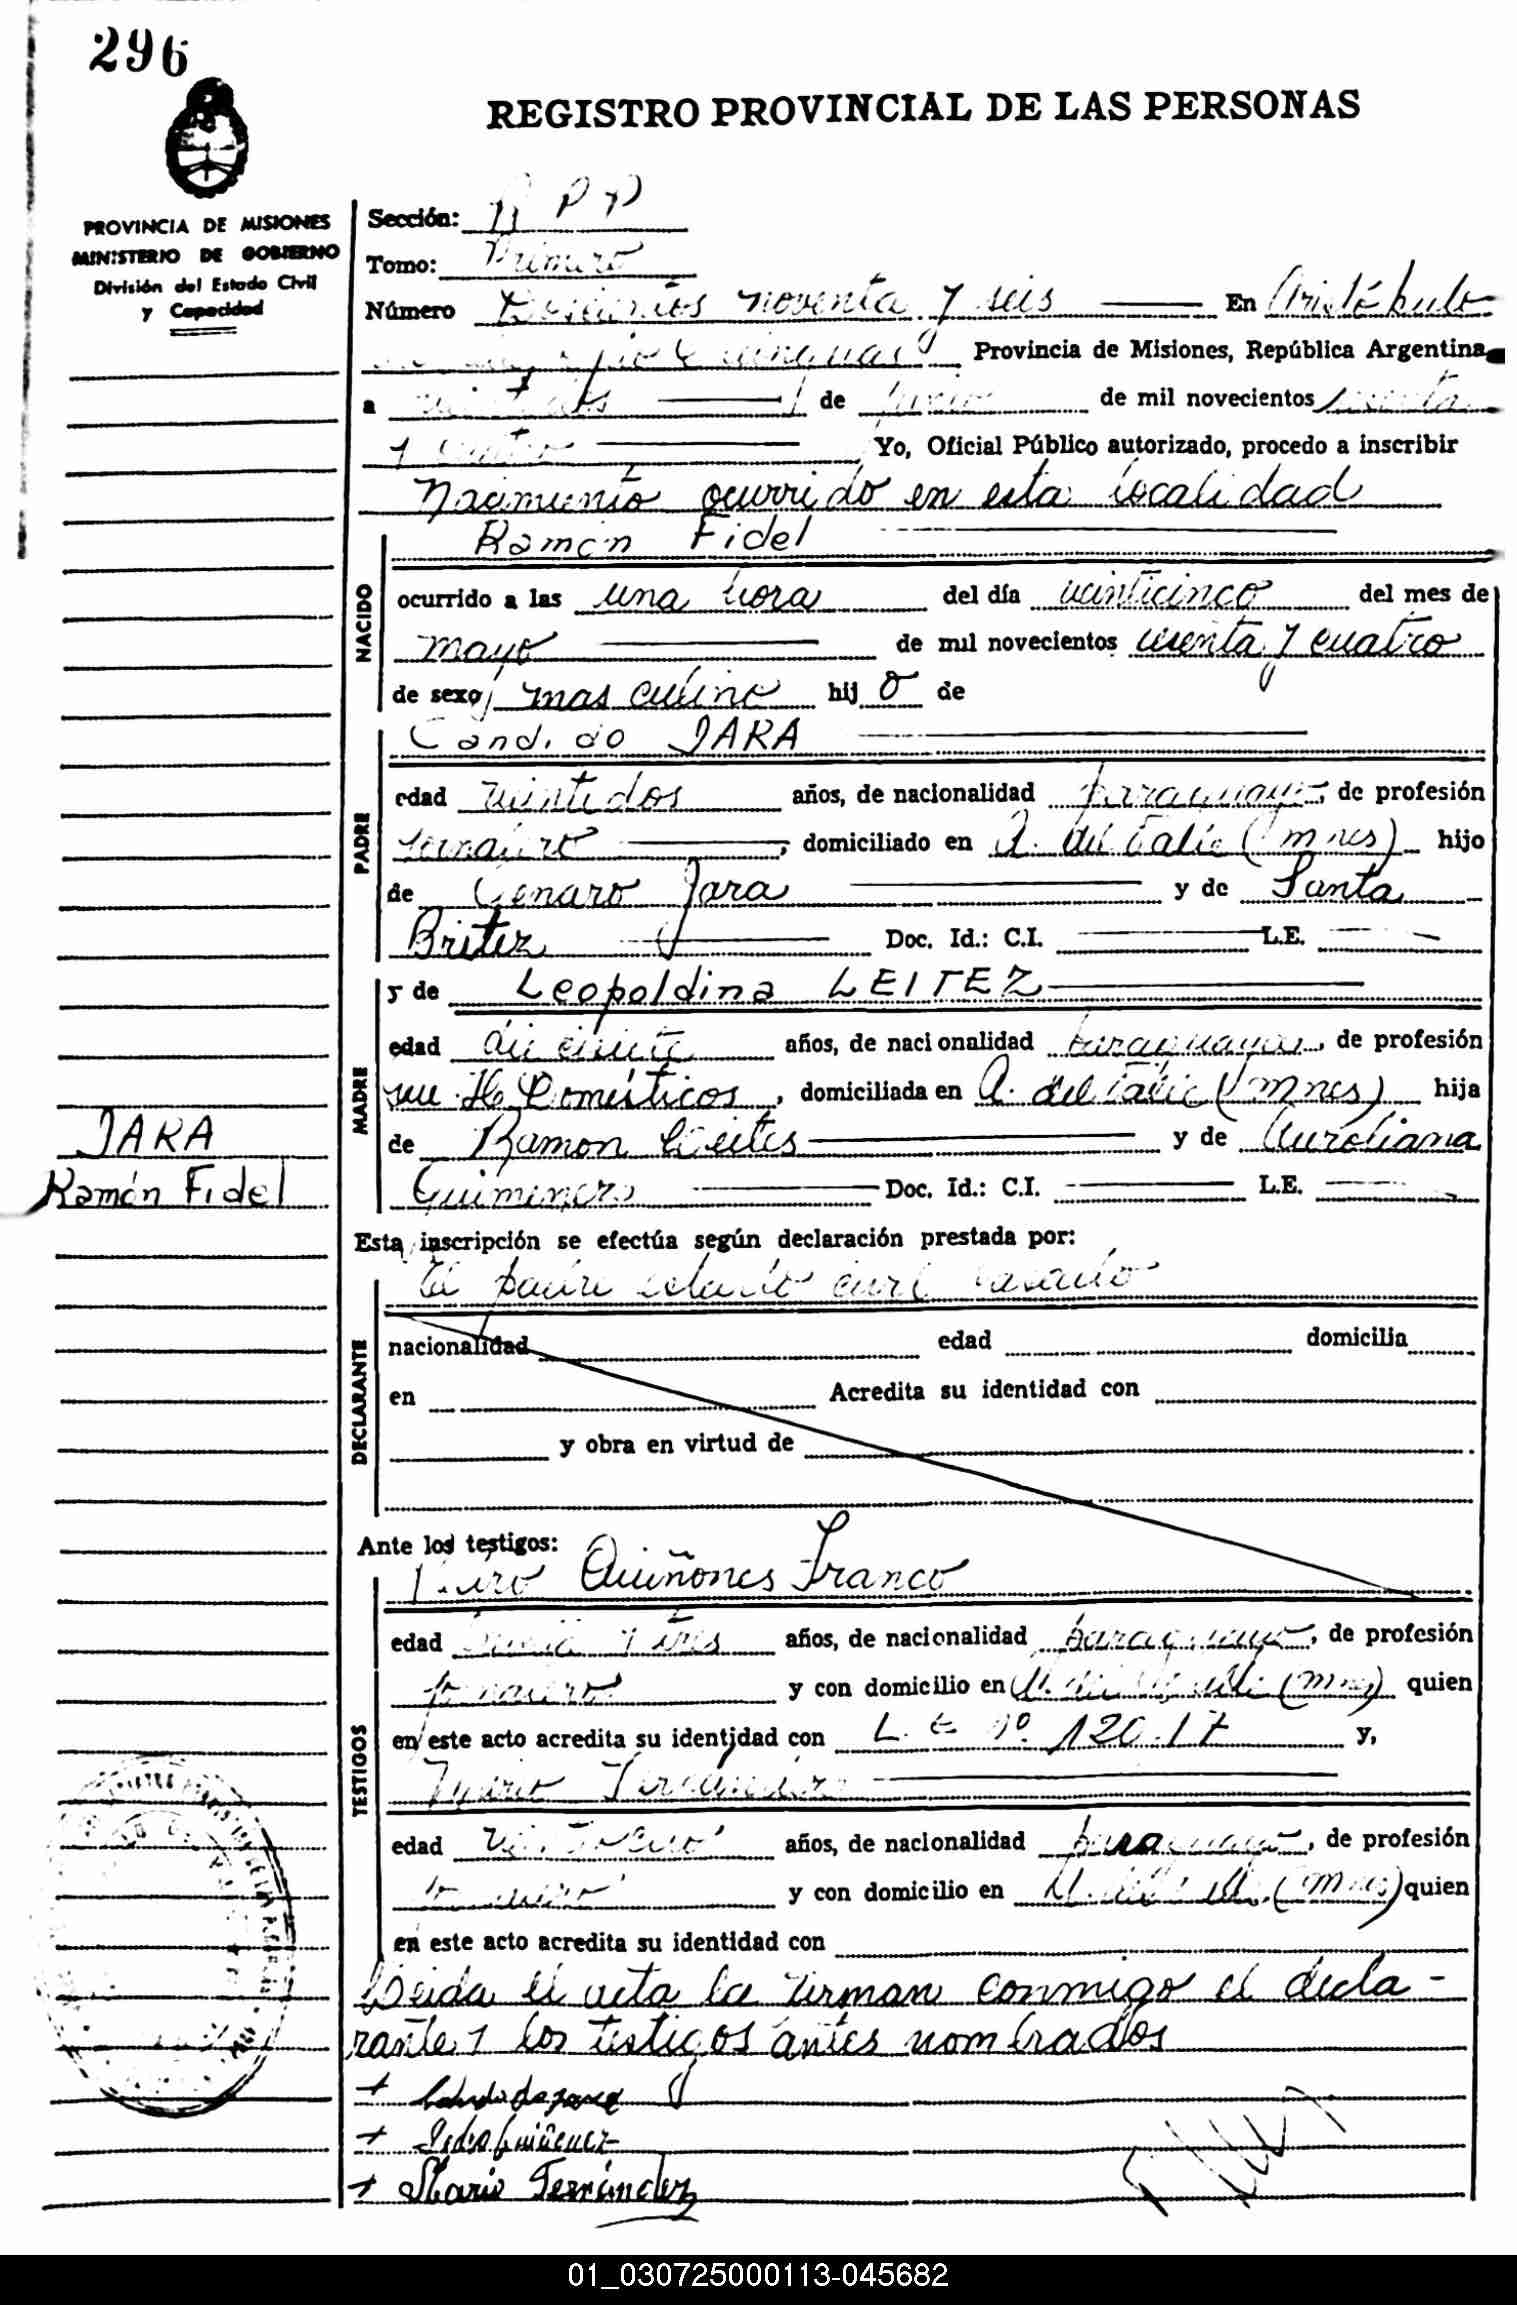 296
REGISTRO PROVINCIAL DE LAS PERSONAS
PROVINCIA DE MISIONES
MINISTERIO DE GOBIERNO
División del Estado Civil
y Capacidad
Sección:
Tomo: Primero
Número Doscientos noventa y seis En Aristóbulo
Provincia de Misiones, República Argentina
a de de mil novecientos
y cuatro Yo, Oficial Público autorizado, procedo a inscribir
Nacimiento ocurrido en esta localidad
Ramón Fidel
NACIDO
ocurrido a las una hora del día veinticinco del mes de
mayo de mil novecientos sesenta y cuatro
de sexo masculino hij o de
Candido JARA
PADRE
edad veintidos años, de nacionalidad paraguayo, de profesión
jornalero, domiciliado en A. del Valle (Mnes) hijo
de Genaro Jara y de Santa
Britez Doc. Id.: C.I. L.E.
MADRE
y de Leopoldina LEITEZ
edad años, de nacionalidad paraguaya, de profesión
Domésticos, domiciliada en A. del Valle (Mnes) hija
de Ramon Leites y de Aureliana
Doc. Id.: C.I. L.E.
JARA
Ramón Fidel
Esta inscripción se efectúa según declaración prestada por:
El padre estado civil casado
DECLARANTE
nacionalidad edad domicilia
en Acredita su identidad con
y obra en virtud de
Ante los testigos:
Quiñones Franco
TESTIGOS
edad y tres años, de nacionalidad paraguayo, de profesión
jornalero y con domicilio en (Mnes) quien
en este acto acredita su identidad con L.E nº. 120.17 y,
Mario Fernández
edad años, de nacionalidad paraguayo, de profesión
jornalero y con domicilio en (Mnes) quien
en este acto acredita su identidad con
Leida el acta la firman conmigo el decla-
rante y los testigos antes nombrados
Mario Fernández
01_030725000113-045682